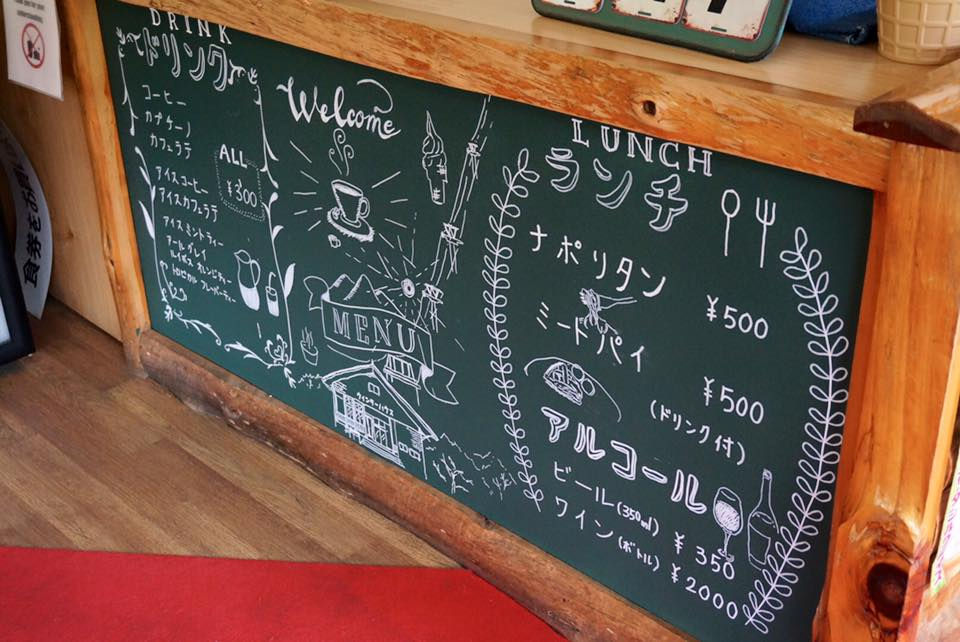 DRINK
ドリンク
コーヒー
カプチーノ
カフェラテ
ALL
¥300
アイスコーヒー
アイスカフェラテ
アイスミントティー
アールグレイ
ルイボス オレンジティー
トロピカル フレーバーティー
Welcome
MENU
ウィンターハウス
LUNCH
ランチ
ナポリタン
¥500
ミートパイ
¥500
(ドリンク付)
アルコール
ビール(350ml) ¥350
ワイン(ボトル) ¥2000